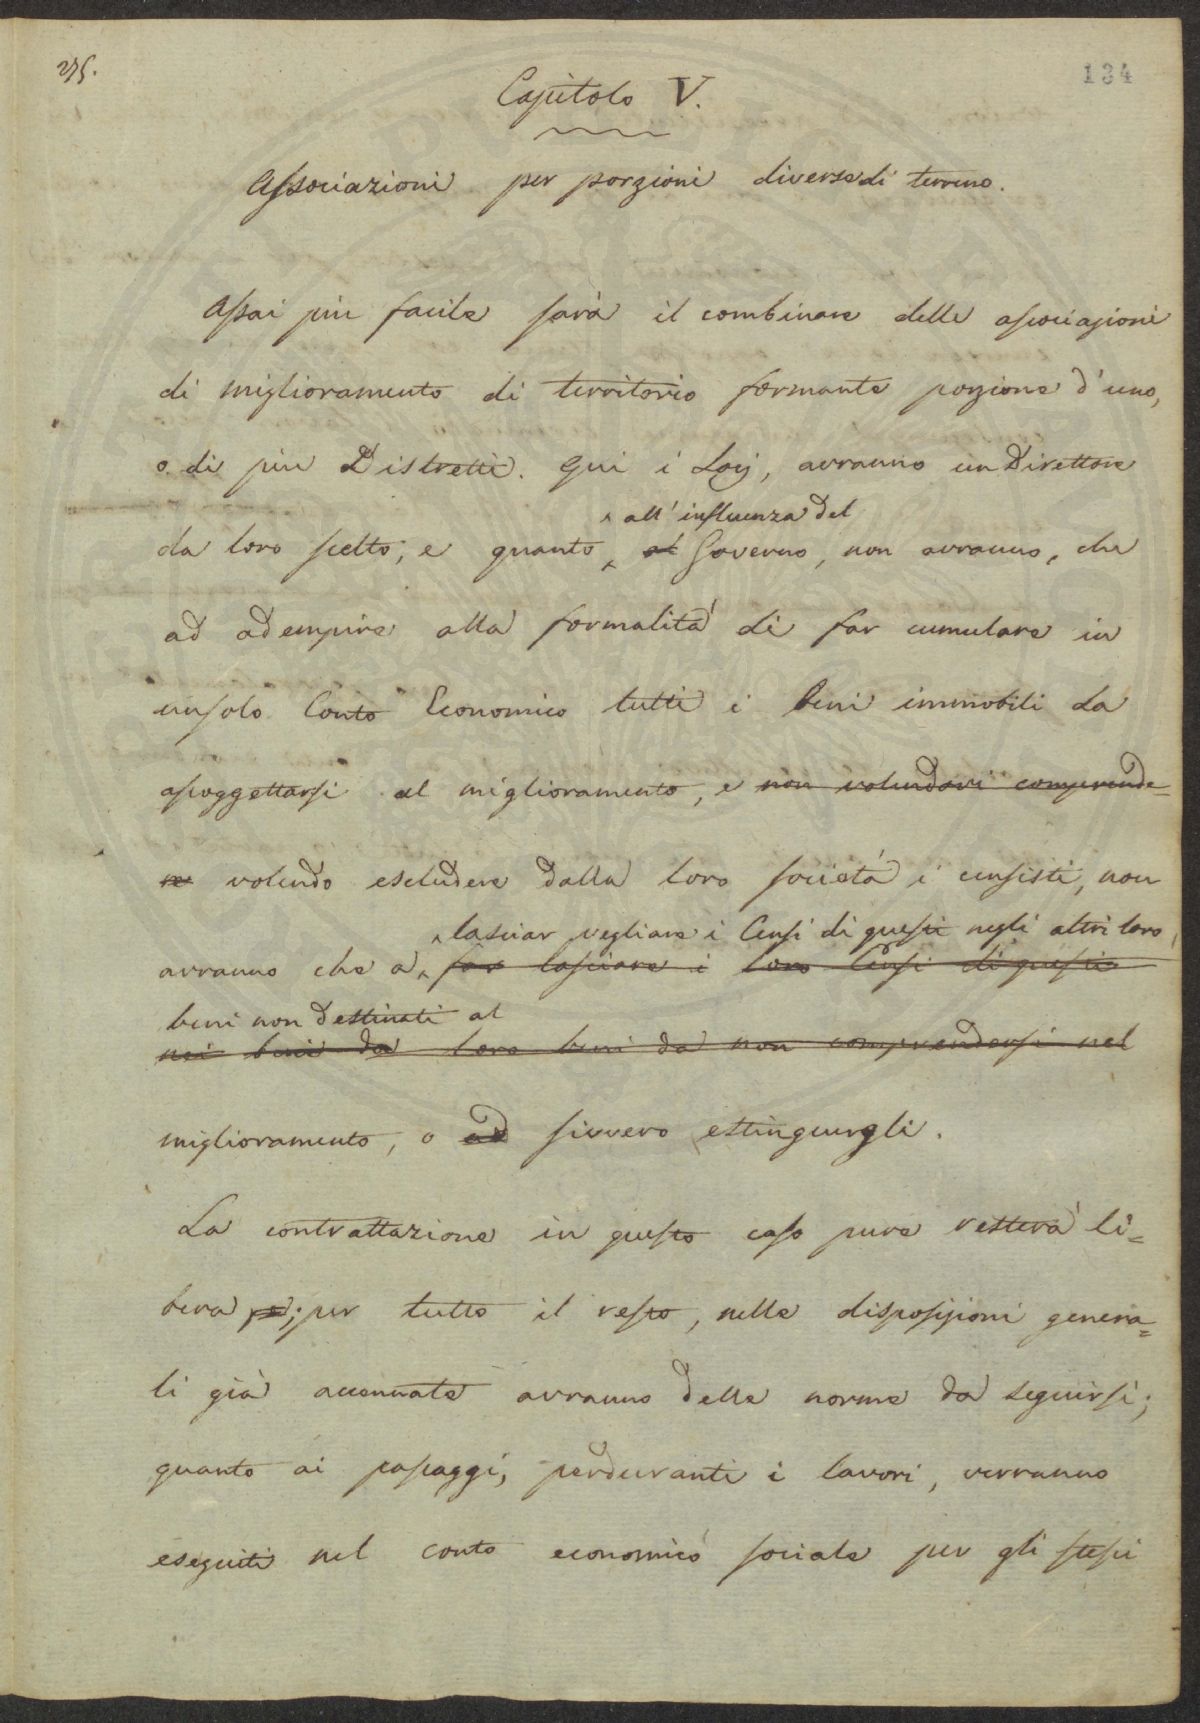 275.
134
Capitolo V.
Associazioni per porzioni diverse di terreno.
Assai più facile sarà il combinare delle associazioni
di miglioramento di territorio formante porzione d'uno,
o di più Distretti. Qui i Socj, avranno un Direttore
all' influenza del
da loro scelto; e quanto, al Governo, non avranno, che
ad adempire alla formalità di far cumulare in
un solo Conto Economico tutti i beni immobili da
assoggettarsi al miglioramento, e non volendovi comprende=
re volendo escludere dalla loro società i censisti, non
lasciar vegliare i Censi di questi negli altri loro
avranno che a far lasciare i loro Censi di questi
beni non destinati al
nei beni da loro beni da non comprendersi nel
miglioramento, o ad sivvero estinguergli.
La contrattazione in questo caso pure resterà li=
bera e; per tutto il resto, nelle disposizioni genera=
li già accennate avranno delle norme da seguirsi;
quanto ai passaggi, perduranti i lavori, verranno
eseguiti nel conto economico sociale per gli stessi